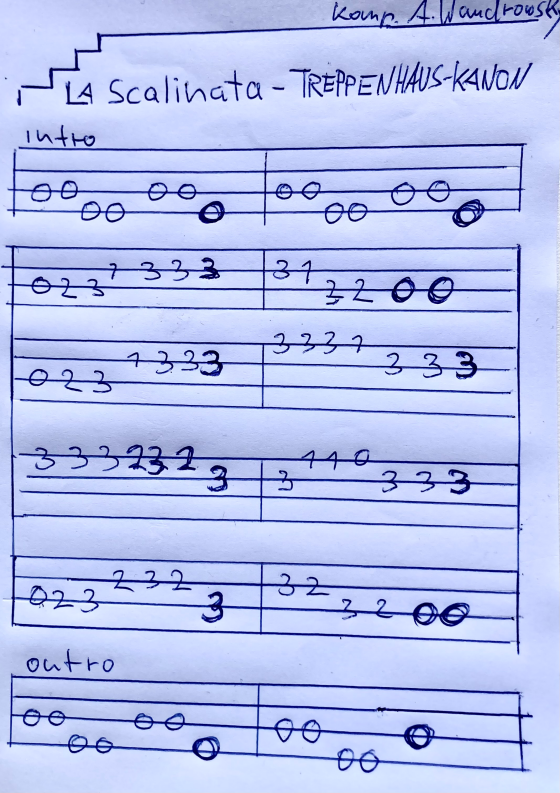 Komp. A. Wandrowsky
LA Scalinata - TREPPENHAUS-KANON
intro
0 0 0 0 0 0 0 0 0 0 0 0 0 0
0 2 3 1 3 3 3 3 1 3 2 0 0
0 2 3 1 3 3 3 3 3 3 1 3 3 3
3 3 3 2 3 2 3 3 1 1 0 3 3 3
0 2 3 2 3 2 3 3 2 3 2 0 0
outro
0 0 0 0 0 0 0 0 0 0 0 0